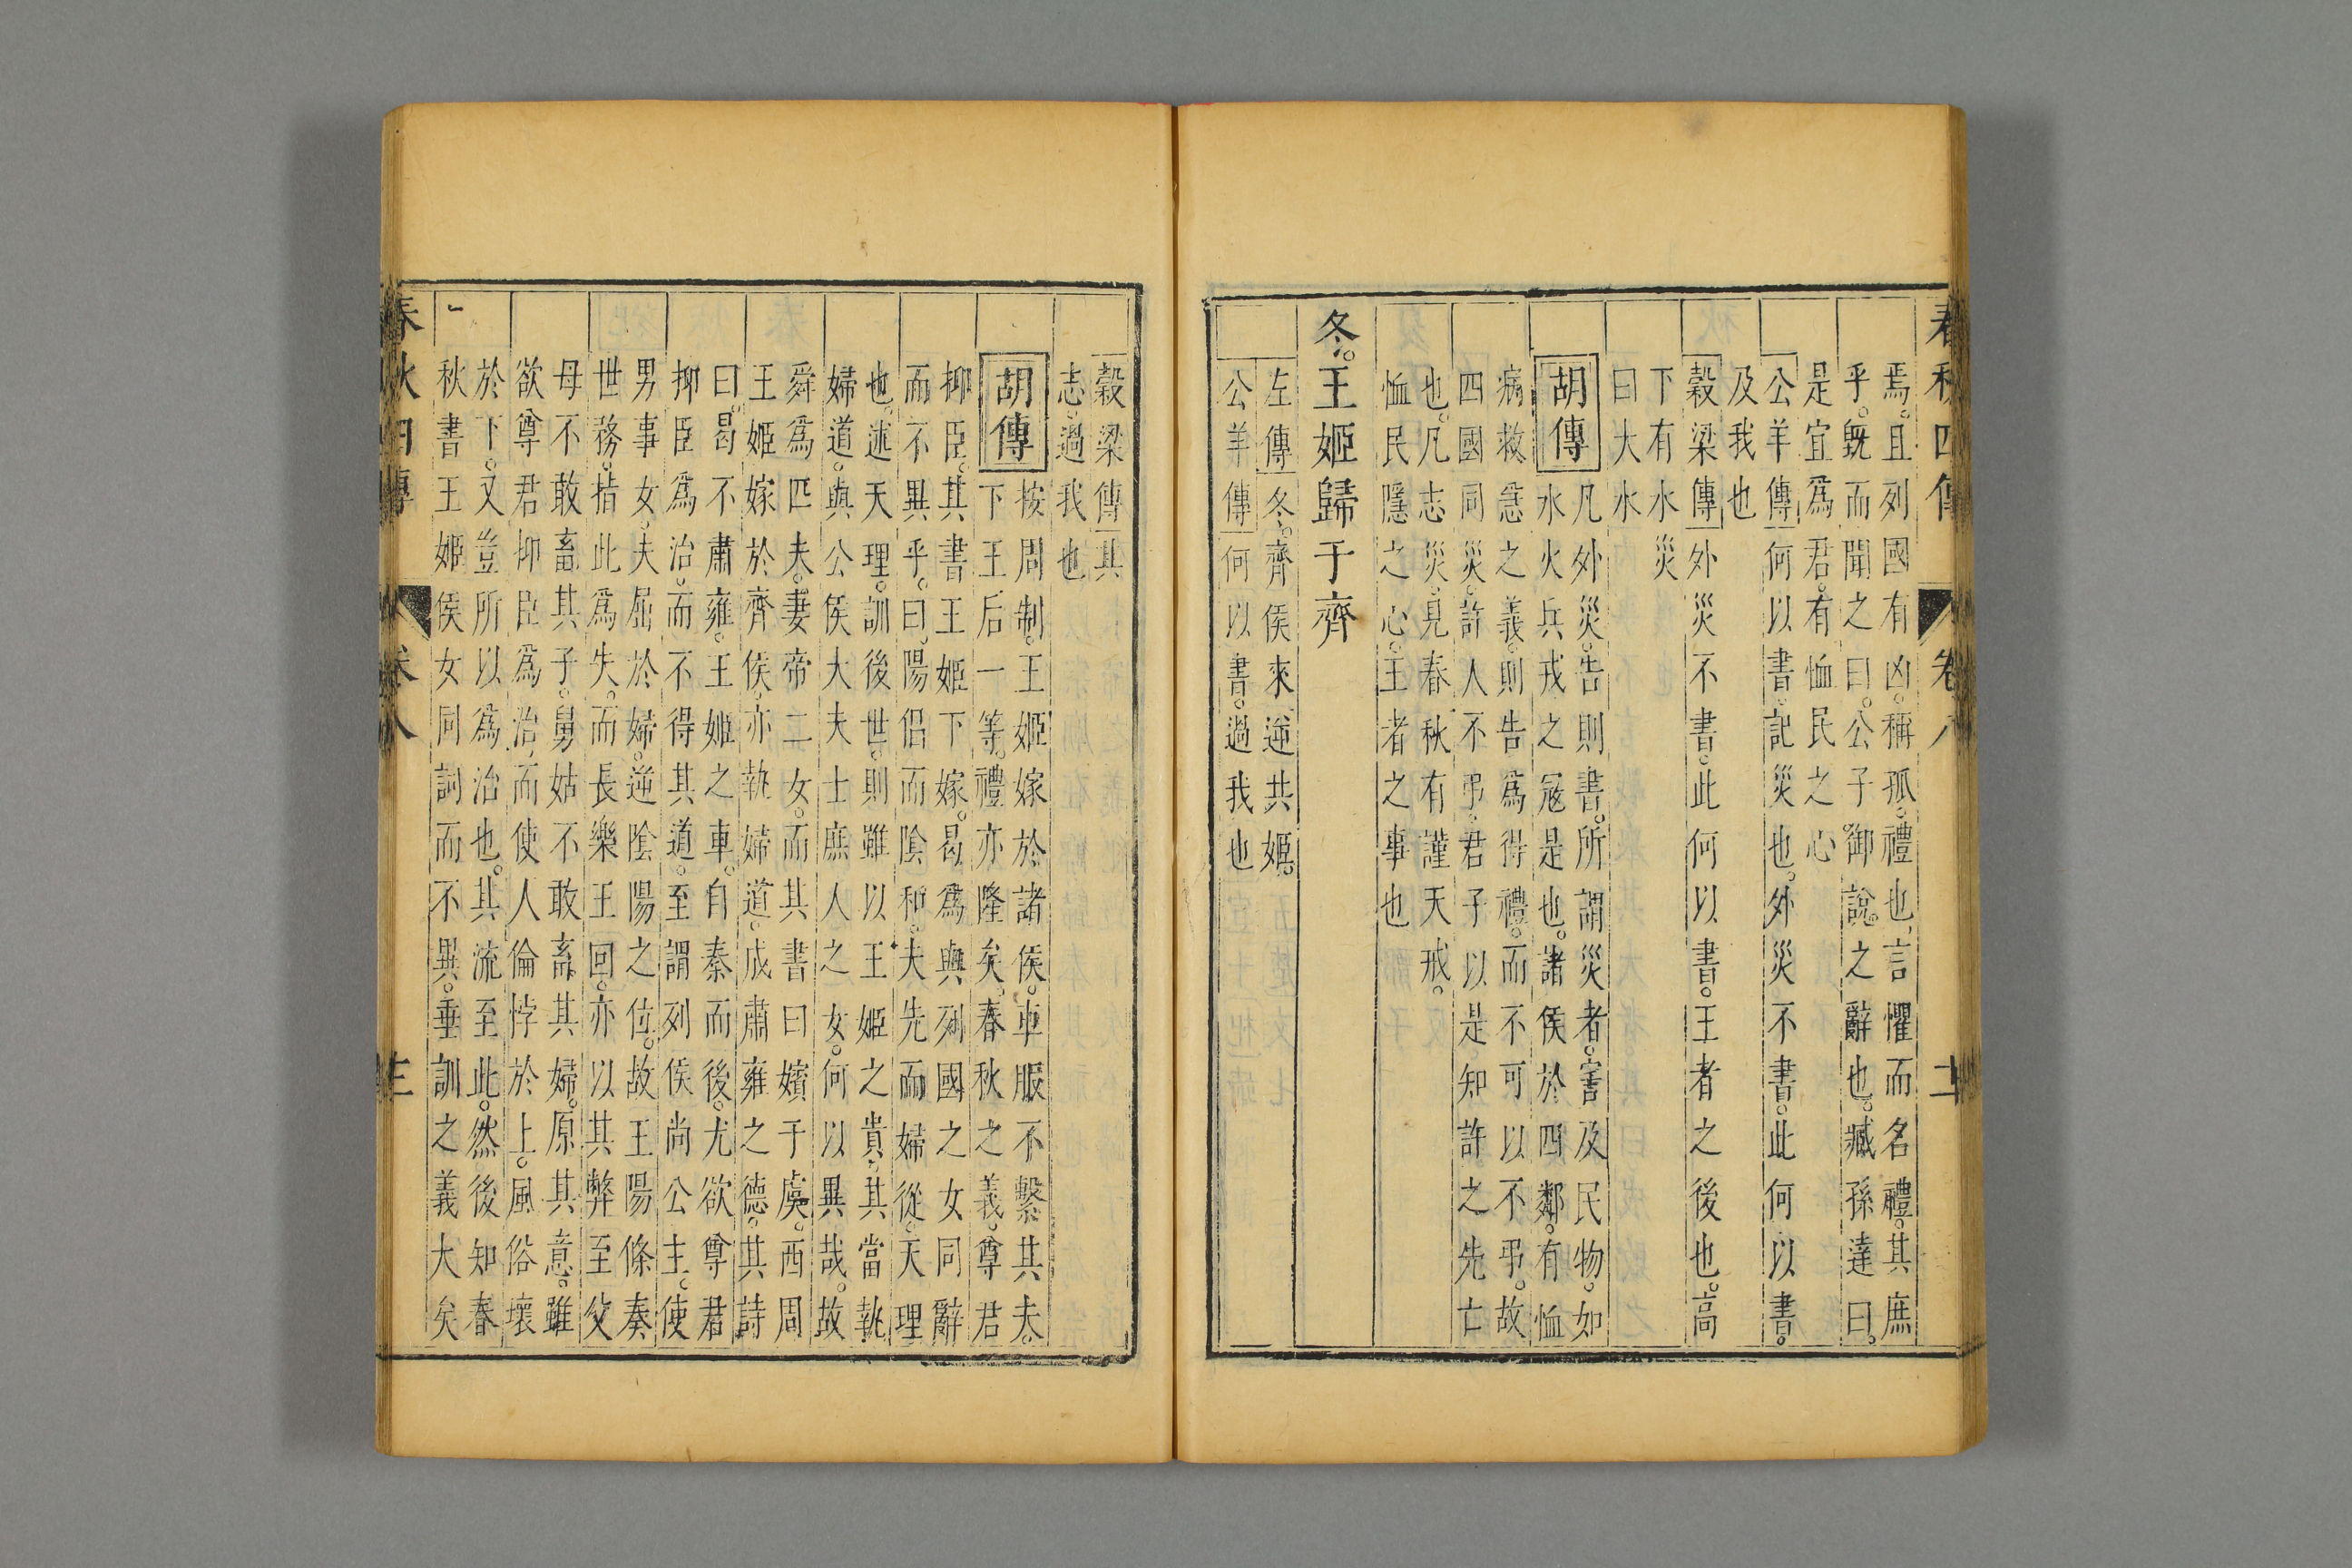 春秋四傳 卷八
焉。且列國有凶。稱孤。禮也。言懼而名禮。其庶
乎。旣而聞之曰。公子御說。之辭也。臧孫達曰。
是宜爲君。有恤民之心
公羊傳何以書。記災也。外災不書。此何以書。
及我也
穀梁傳外災不書。此何以書。王者之後也。高
下有水災
曰大水
胡傳凡外災。告則書。所謂災者。害及民物。如
水火兵戎之寇是也。諸侯於四鄰。有恤
病救急之義。則告爲得禮。而不可以不弔。故
四國同災。許人不弔。君子以是知許之先亡
也。凡志災。見春秋有謹天戒。
恤民隱之心。王者之事也
冬。王姬歸于齊
左傳冬。齊侯來逆共姬。
公羊傳何以書。過我也
穀梁傳其
志。過我也
胡傳按周制。王姬嫁於諸侯。車服不繫其夫。
下王后一等。禮亦隆矣。春秋之義。尊君
抑臣。其書王姬下嫁。曷爲與列國之女同辭
而不異乎。曰。陽倡而陰和。夫先而婦從。天理
也。述天理。訓後世。則雖以王姬之貴。其當執
婦道。與公侯大夫士庶人之女。何以異哉。故
舜爲匹夫。妻帝二女。而其書曰嬪于虞。西周
王姬嫁於齊侯。亦執婦道。成肅雍之德。其詩
曰。曷不肅雍。王姬之車。自秦而後。尤欲尊君
抑臣爲治。而不得其道。至謂列侯尚公主。使
男事女。夫屈於婦。逆陰陽之位。故王陽條奏
世務。指此爲失。而長樂王回。亦以其弊至父
母不敢畜其子。舅姑不敢畜其婦。原其意。雖
欲尊君抑臣爲治。而使人倫悖於上。風俗壞
於下。又豈所以爲治也。其流至此。然後知春
秋書王姬侯女同詞而不異。垂訓之義大矣
春秋四傳 卷八